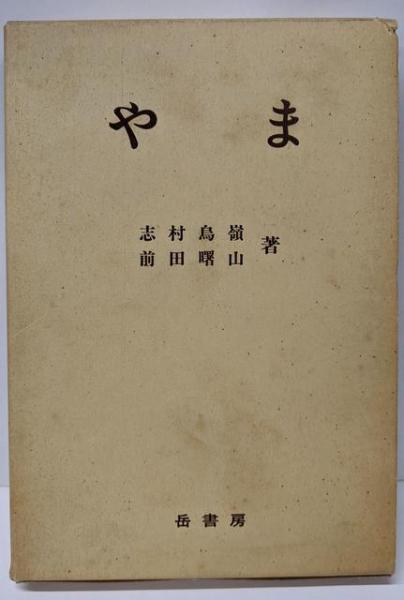 やま
志村烏嶺
前田曙山
著
岳書房